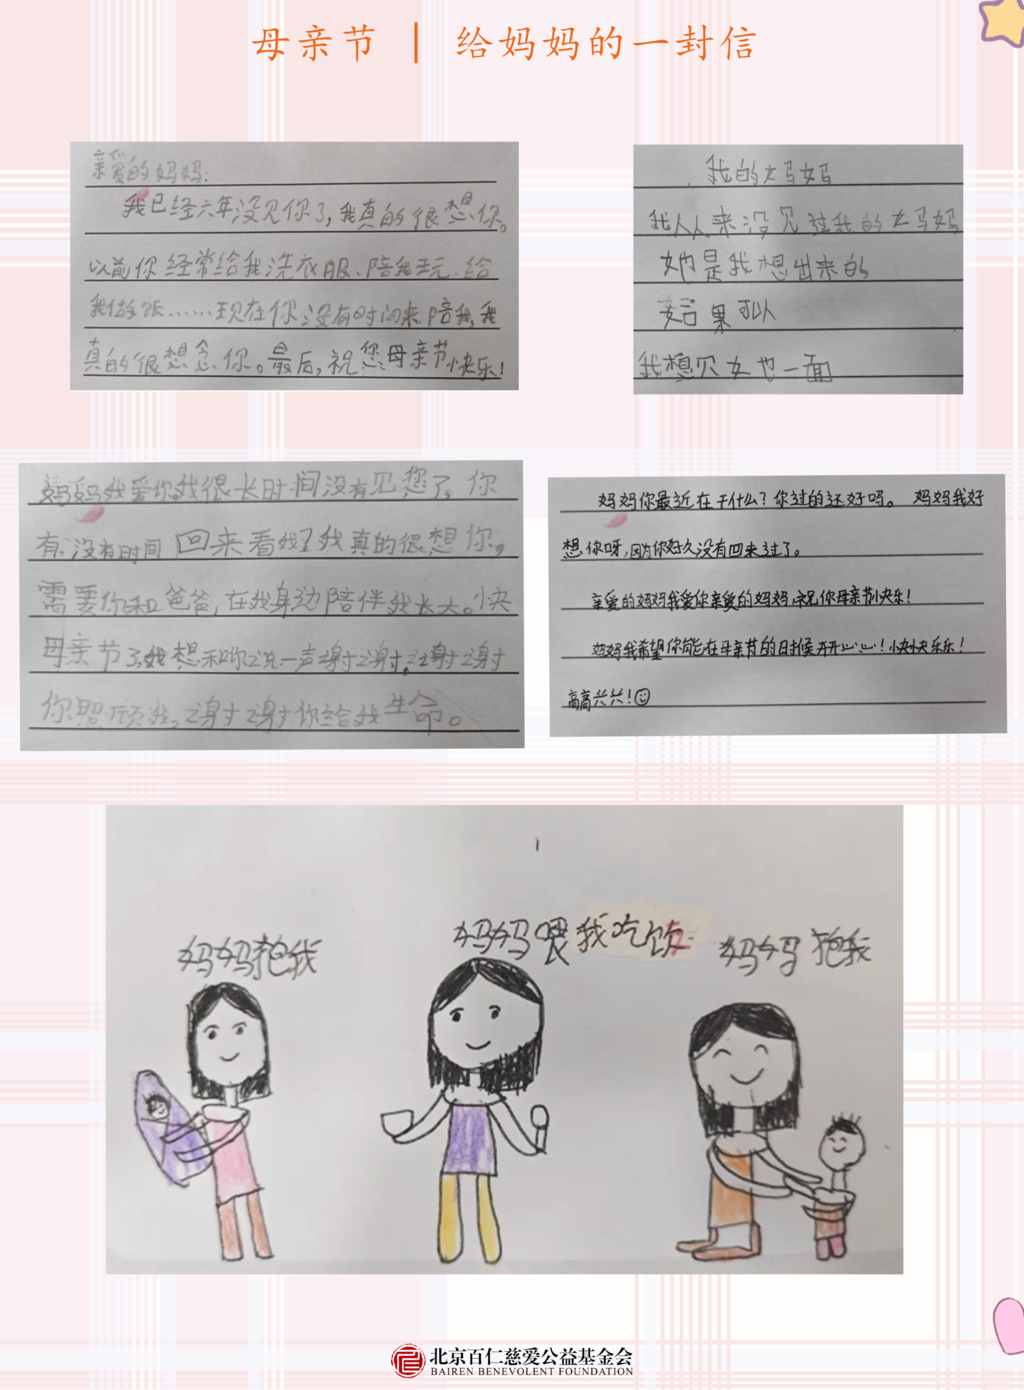 母亲节 | 给妈妈的一封信
亲爱的妈妈:
我已经六年没见你了,我真的很想你。
以前你经常给我洗衣服、陪我玩、给
我做饭……现在你没有时间来陪我,我
真的很想念你。最后,祝您母亲节快乐!
我的妈妈
我从来没见过我的妈妈
她是我想出来的
如果可以
我想见她一面
妈妈我爱你我很长时间没有见您了。你
有没有时间回来看我?我真的很想你。
需要你和爸爸,在我身边陪伴我长大。快
母亲节了我想和你说一声谢谢,谢谢
你照顾我,谢谢你给我生命。
妈妈你最近在干什么?你过的还好吗。 妈妈我好
想你呀,因为你好久没有回来过了。
亲爱的妈妈我爱你亲爱的妈妈,祝你母亲节快乐!
妈妈我希望你能在母亲节的日时候开开心心!快快乐乐!
高高兴兴!☺
妈妈抱我
妈妈喂我吃饭
妈妈抱我
北京百仁慈爱公益基金会
BAIREN BENEVOLENT FOUNDATION